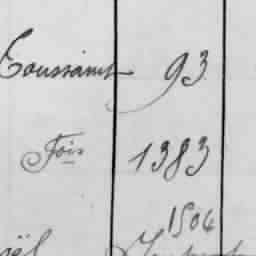 Toussaint 93
Fois 1383
1504